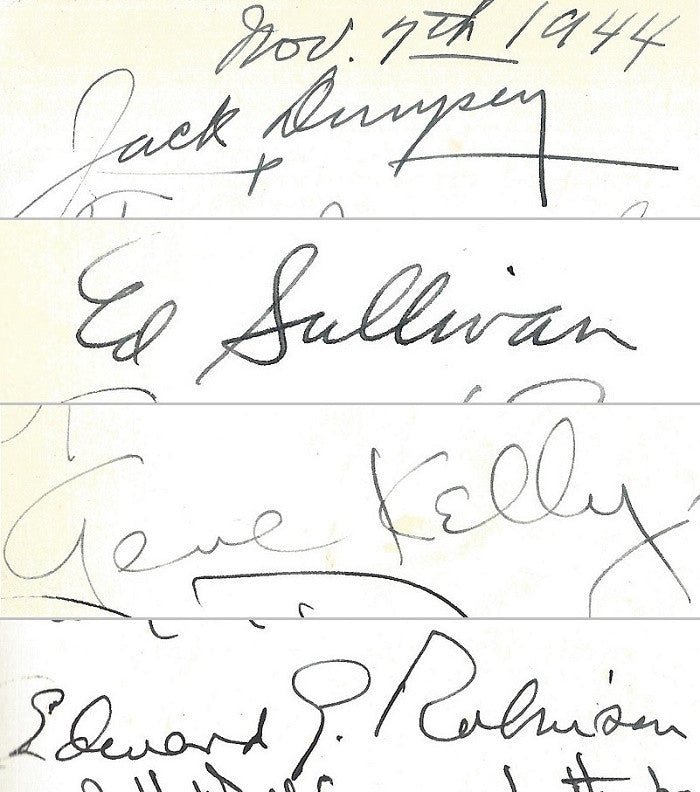 Nov. 7th 1944
Jack Dempsey
Ed Sullivan
Gene Kelly
Edward G. Robinson